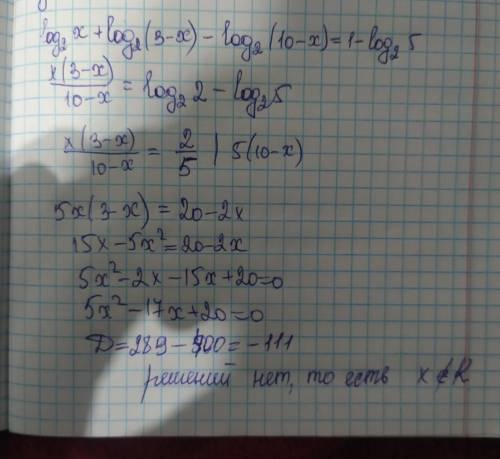 log₂ x + log₂(3-x) - log₂(10-x) = 1 - log₂ 5
x(3-x)/10-x = log₂ 2 - log₂ 5
x(3-x)/10-x = 2/5 | 5(10-x)
5x(3-x) = 20-2x
15x-5x²=20-2x
5x²-2x-15x+20=0
5x²-17x+20=0
D=289-400=-111
решений нет, то есть x∉R